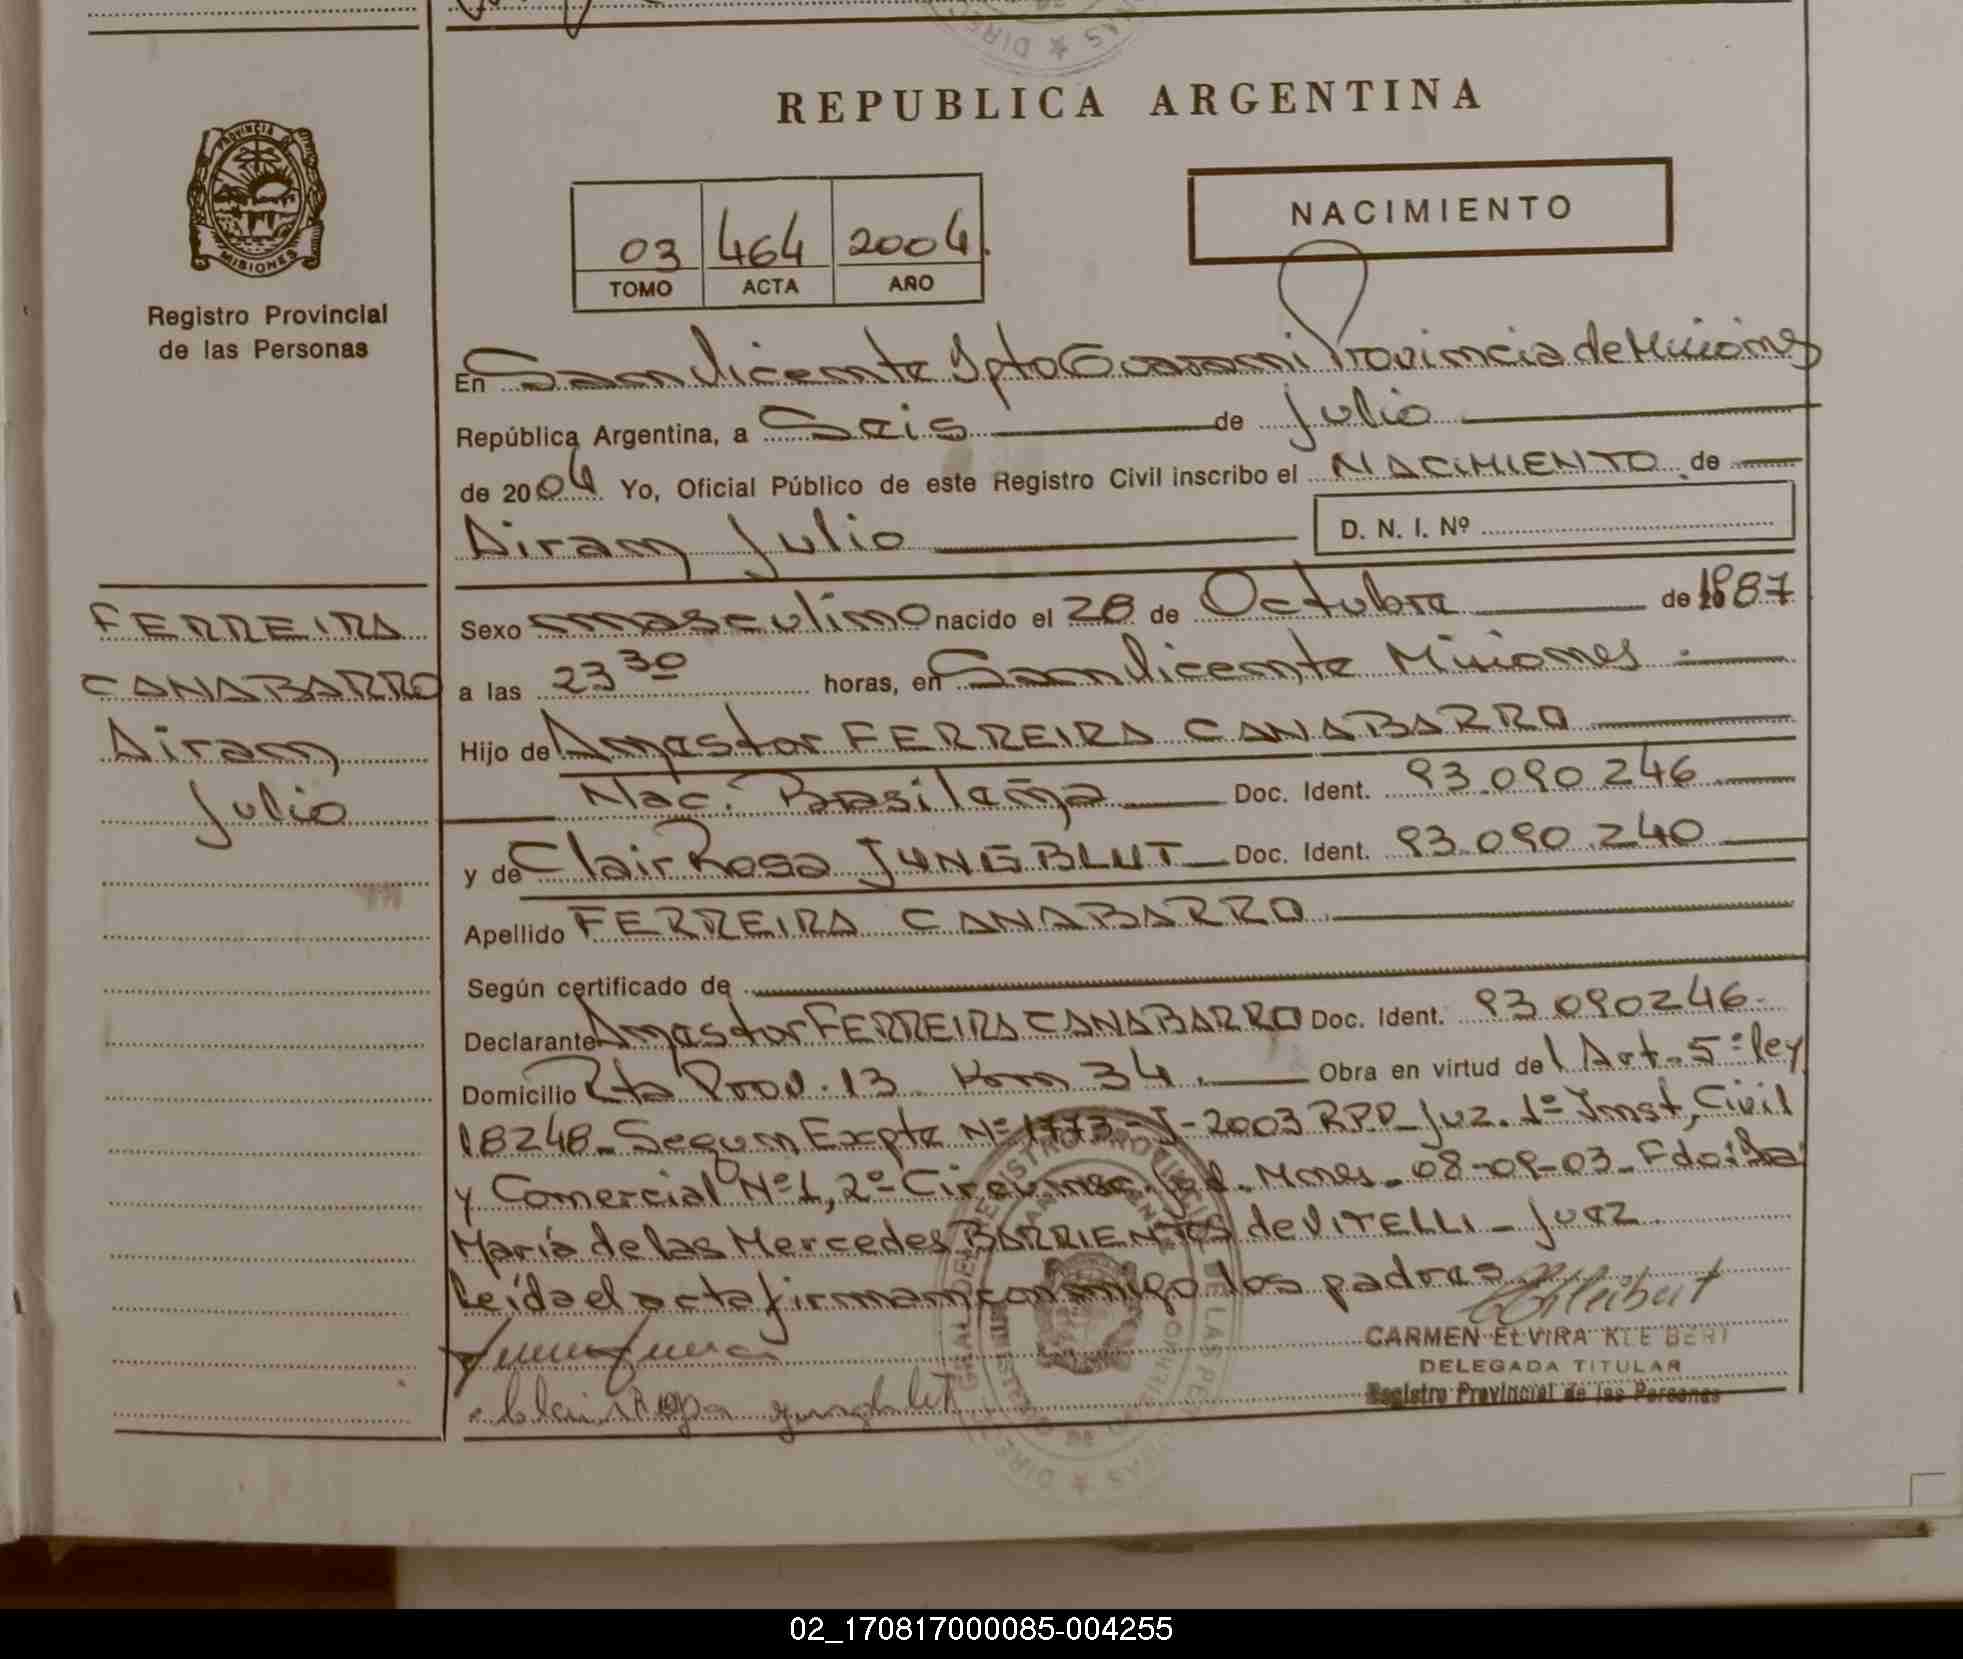 REPUBLICA ARGENTINA
PROVINCIA
MISIONES
Registro Provincial
de las Personas
03 464 2004
TOMO ACTA AÑO
NACIMIENTO
En San Vicente Dpto Guarani Provincia de Misiones
República Argentina, a Seis de Julio
de 2004 Yo, Oficial Público de este Registro Civil inscribo el NACIMIENTO de
Airam Julio D. N. I. Nº
FERREIRA
CANABARRO
Airam
Julio
Sexo masculino nacido el 28 de Octubre de 1987
a las 23 30 horas, en San Vicente Misiones
Hijo de Amastor FERREIRA CANABARRO
Nac. Brasileña Doc. Ident. 93.090.246
y de Clair Rosa JUNGBLUT Doc. Ident. 93.090.240
Apellido FERREIRA CANABARRO
Según certificado de
Declarante Amastor FERREIRA CANABARRO Doc. Ident. 93.090246.
Domicilio Rta Prov. 13 Km 34. Obra en virtud del Art. 5º ley
18248. Segun Expte Nº 1773-J-2003 RPP Juz. 1º Inst, Civil
y Comercial Nº 1, 2º Circunsc. Jud. Mnes. 08-09-03. Fdo: Da
María de las Mercedes BARRIENTOS de VITELLI - Juez
Leída el acta firman conmigo los padres
Clair Rosa Jungblut
CARMEN ELVIRA KLEBERT
DELEGADA TITULAR
Registro Provincial de las Personas
02_170817000085-004255